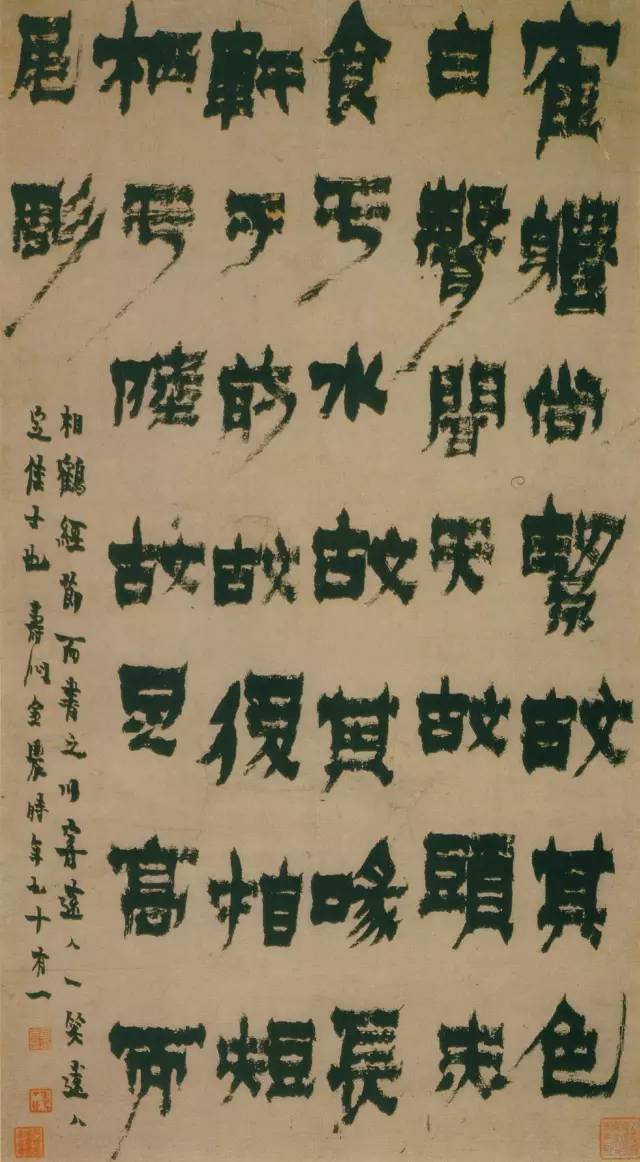 隺軆尚絜故其色
白聲聞天故頭赤
食于水故其喙長
軒于前故後指短
栖于陸故足高而
尾彫
相鶴經節而書之以寄遠人一笑遠人
定佳士也 壽門金農時年五十有一